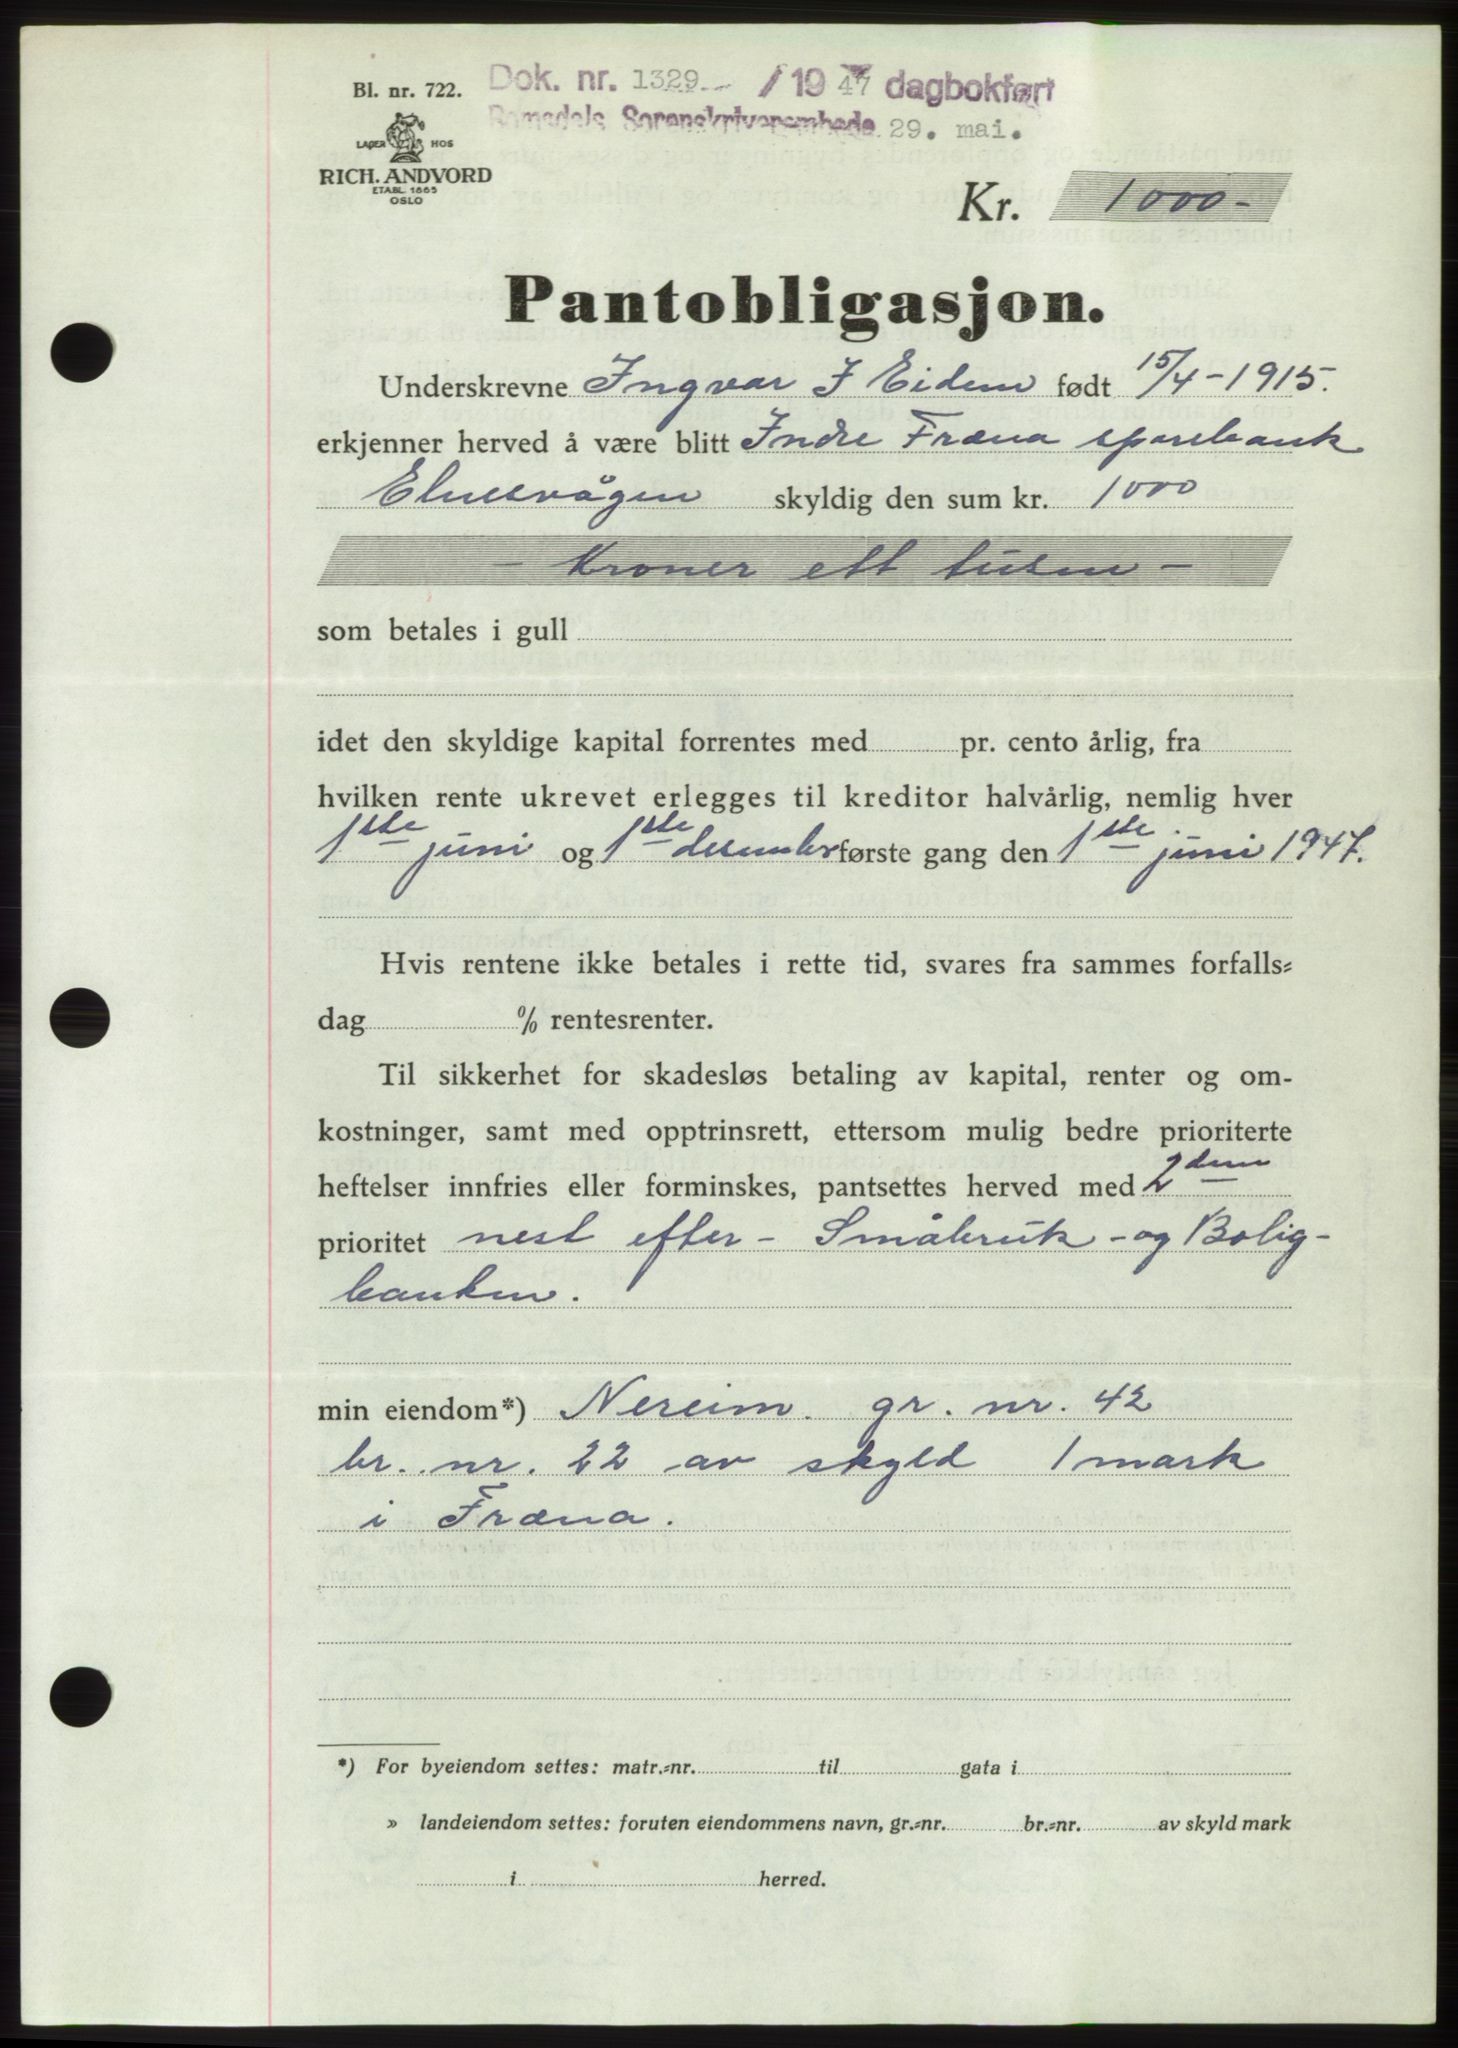 Bl. nr. 722.
Dok. nr. 1329 / 1947 dagbokført
Romsdals Sorenskriverembede 29. mai.
LAGER HOS
RICH. ANDVORD
ETABL. 1865
OSLO
Kr. 1000-
Pantobligasjon.
Underskrevne Ingvar J Eidem født 15/4-1915.
erkjenner herved å være blitt Indre Fræna sparebank
Elnesvågen skyldig den sum kr. 1000
- Kroner ett tusen -
som betales i gull
idet den skyldige kapital forrentes med pr. cento årlig, fra
hvilken rente ukrevet erlegges til kreditor halvårlig, nemlig hver
1ste juni og 1ste desember første gang den 1ste juni 1947.
Hvis rentene ikke betales i rette tid, svares fra sammes forfalls-
dag % rentesrenter.
Til sikkerhet for skadesløs betaling av kapital, renter og om-
kostninger, samt med opptrinsrett, ettersom mulig bedre prioriterte
heftelser innfries eller forminskes, pantsettes herved med 2den
prioritet nest efter - Småbruk - og Bolig-
banken.
min eiendom*) Nereim. gr. nr. 42
br. nr. 22 av skyld 1 mark
i Fræna.
*) For byeiendom settes: matr.-nr. til gata i
» landeiendom settes: foruten eiendommens navn, gr.-nr. br.-nr. av skyld mark
i herred.